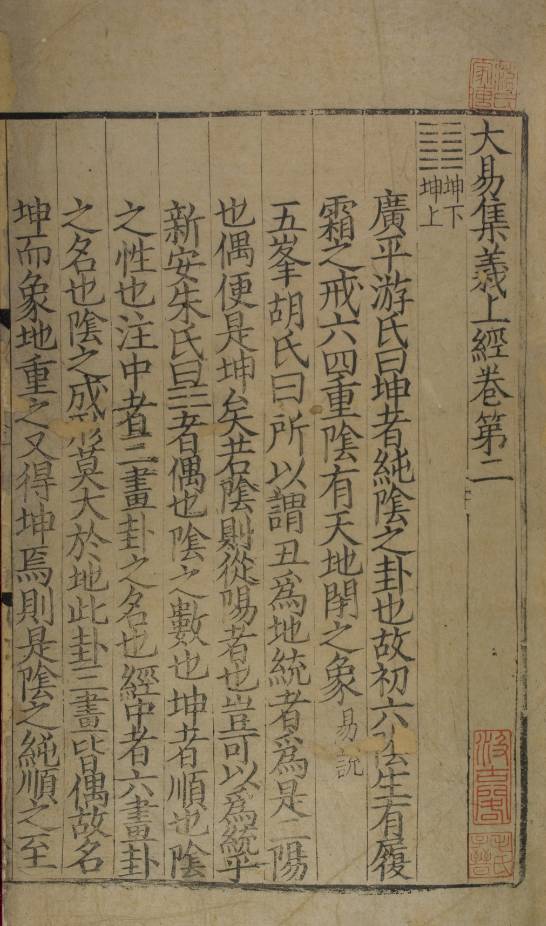 大易集義上經卷第二
坤下
坤上
廣平游氏曰坤者純陰之卦也故初六陰生有履
霜之戒六四重陰有天地閉之象易說
五峯胡氏曰所以謂丑爲地統者爲是二陽
也偶便是坤矣若陰則從陽者也豈可以爲統乎
新安朱氏曰⚋者偶也陰之數也坤者順也陰
之性也注中者三畫卦之名也經中者六畫卦
之名也陰之成形莫大於地此卦三畫皆偶故名
坤而象地重之又得坤焉則是陰之純順之至